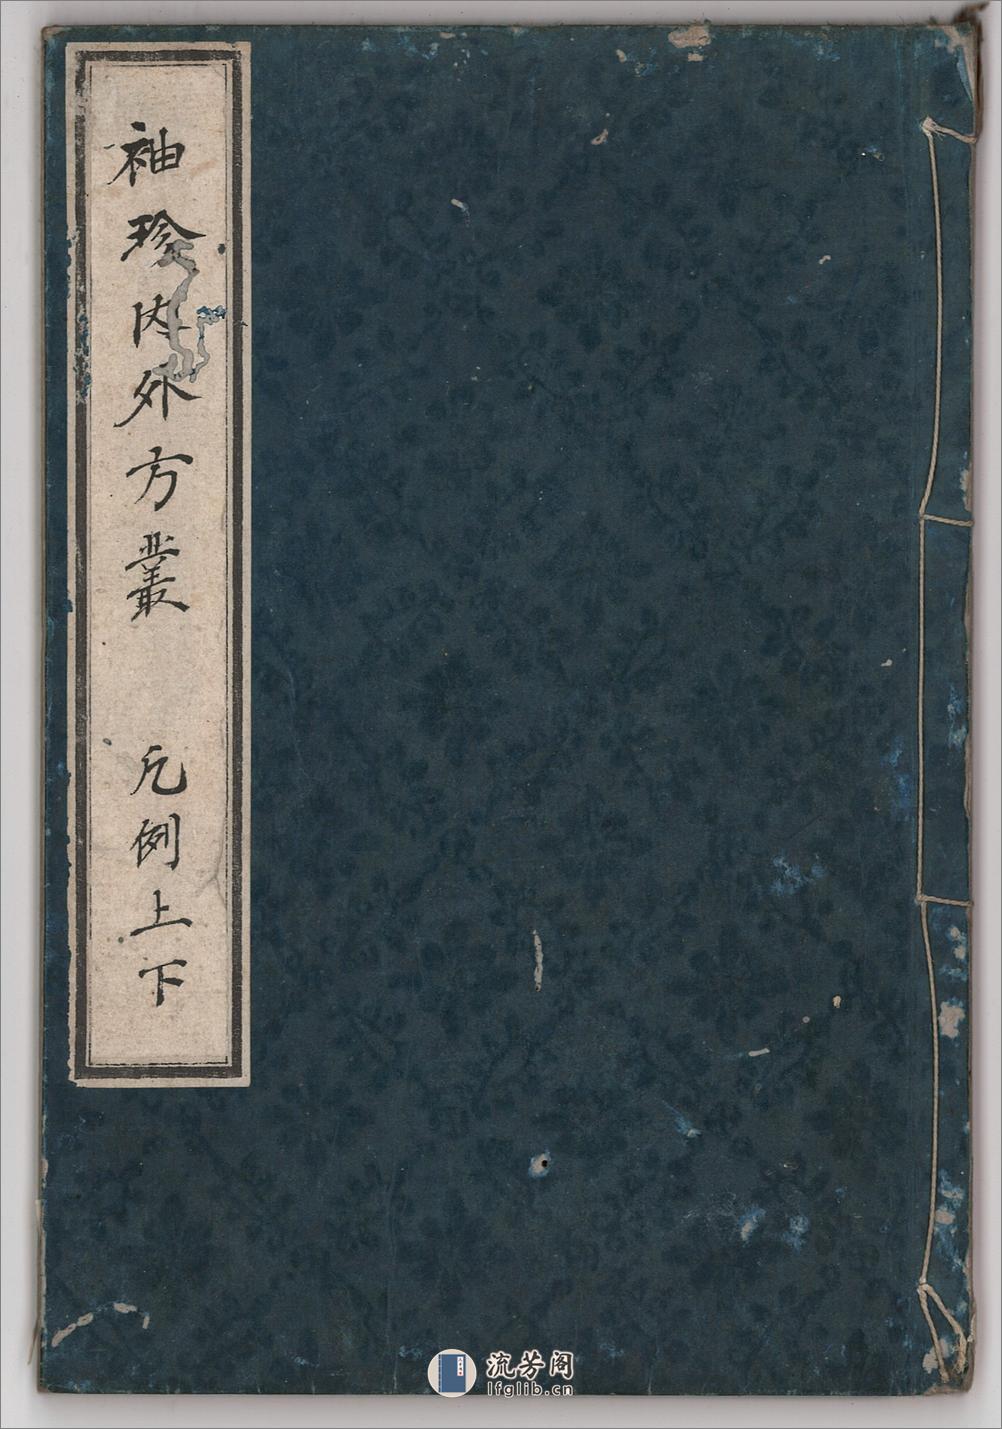 袖珍内外方叢 凡例上下
流芳阁
lfglib.cn